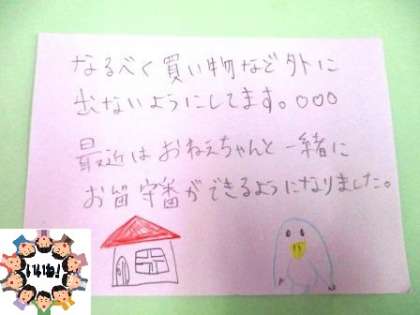 なるべく買い物など外に
出ないようにしてます。○○○
最近はおねえちゃんと一緒に
お留守番ができるようになりました。
いいね!